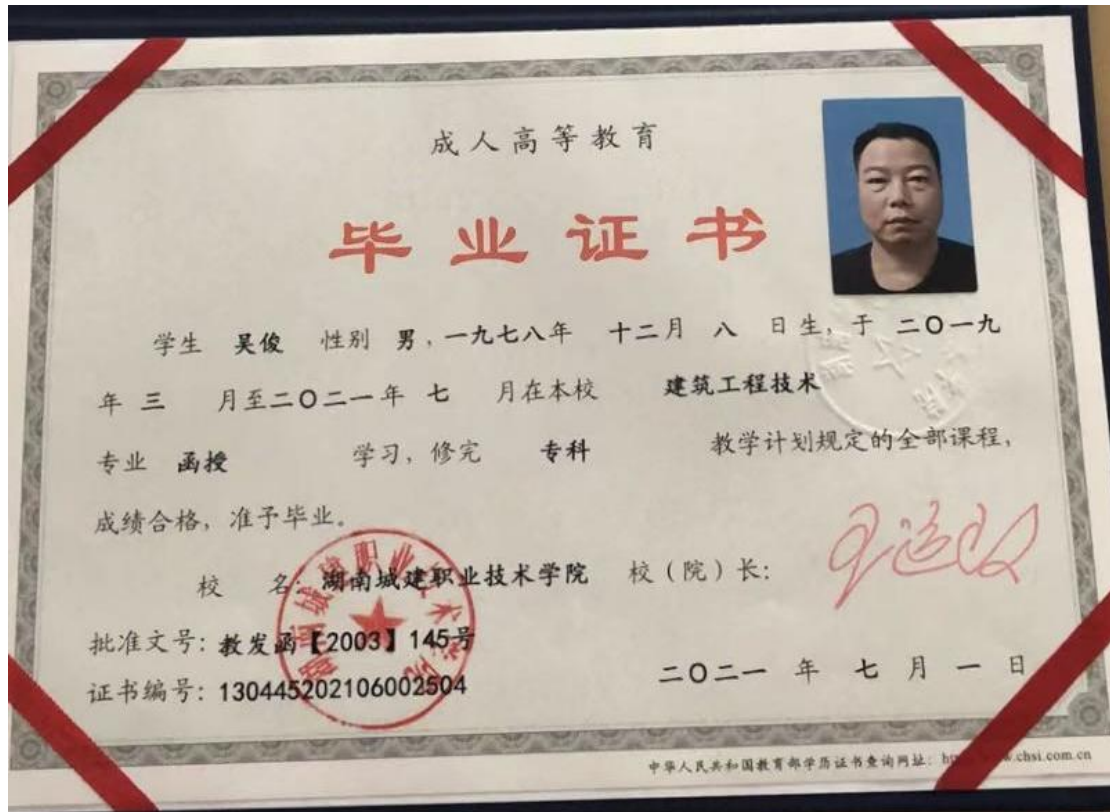 成人高等教育
毕业证书
学生 吴俊 性别 男，一九七八年 十二月 八 日生，于 二〇一九
年 三 月至二〇二一年 七 月在本校 建筑工程技术
专业 函授 学习，修完 专科 教学计划规定的全部课程，
成绩合格，准予毕业。
校 名：湖南城建职业技术学院 校（院）长：
湖南城建职业技术学院
批准文号：教发函【2003】145号
证书编号：130445202106002504
二〇二一 年 七 月 一 日
中华人民共和国教育部学历证书查询网址：
.chsi.com.cn